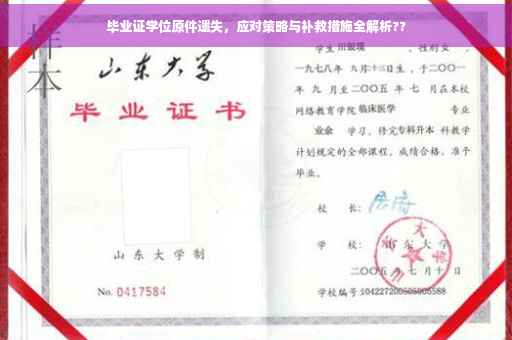 毕业证学位原件遗失，应对策略与补救措施全解析??
样本
山东大学
毕业证书
山东大学制
No. 0417584
学生 田银瑛 ，性别 女 ，
一九七八年 九月十三日生，于二〇〇一
年 九 月至二〇〇五 年 七 月在本校
网络教育学院 临床医学 专业
业余 学习，修完 专科升本 科教学
计划规定的全部课程，成绩合格，准予
毕业。
校 长：
学 校：山东大学
二〇〇五 年 七 月 十 日
学校编号：